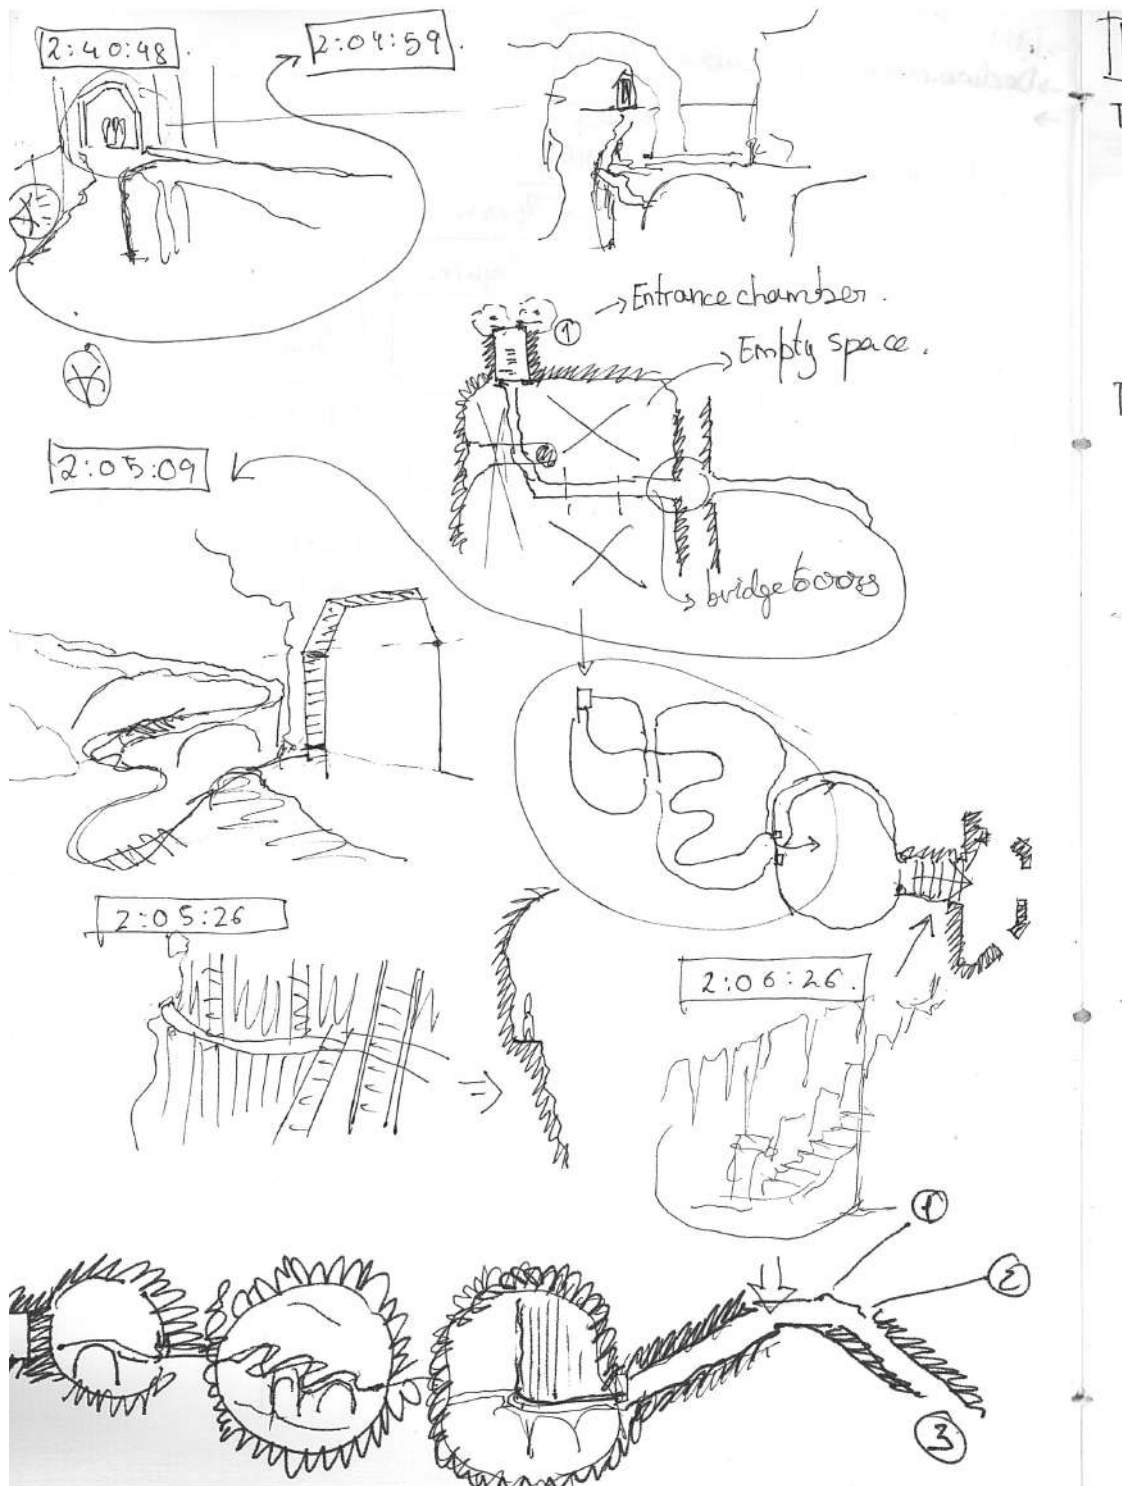 2:40:48
2:04:59.
Entrance chamber.
1
Empty space.
2:05:09
bridge
2:05:26
2:06:26.
1
2
3